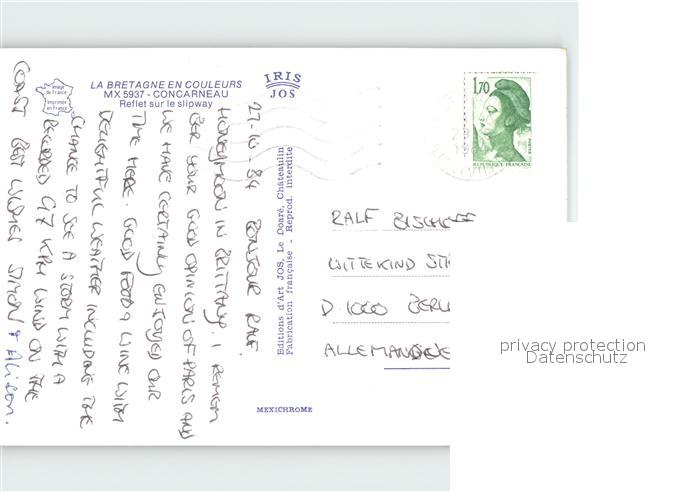 LA BRETAGNE EN COULEURS
MX 5937 - CONCARNEAU
Reflet sur le slipway
Image
de France
Imprimée
en France
IRIS
JOS
27-10-84 BONJOUR RALF.
HONEYMOON IN BRITTANY. I REMEM
BER YOUR GOOD OPINION OF PARIS AND
WE HAVE CERTAINLY ENJOYED OUR
TIME HERE. GOOD FOOD & WINE WITH
DELIGHTFUL WEATHER INCLUDING THE
CHANCE TO SEE A STORM WITH A
RECORDED 97 KPH WIND ON THE
COAST BEST WISHES SIMON & Alison.
Editions d'Art JOS, Le Doaré, Châteaulin
Fabrication française - Reprod. interdite
MEXICHROME
1,70
REPUBLIQUE FRANÇAISE
RALF
WITTEKIND
D 1000 BERL
ALLEMAGNE
privacy protection
Datenschutz